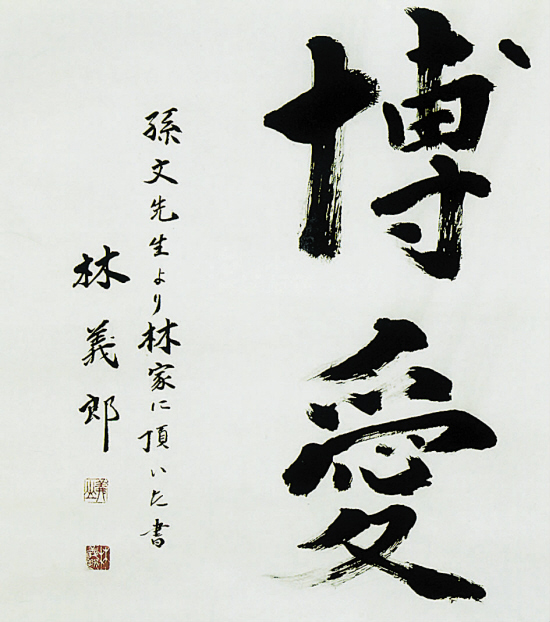 博愛
孫文先生より林家に頂いた書
林義郎